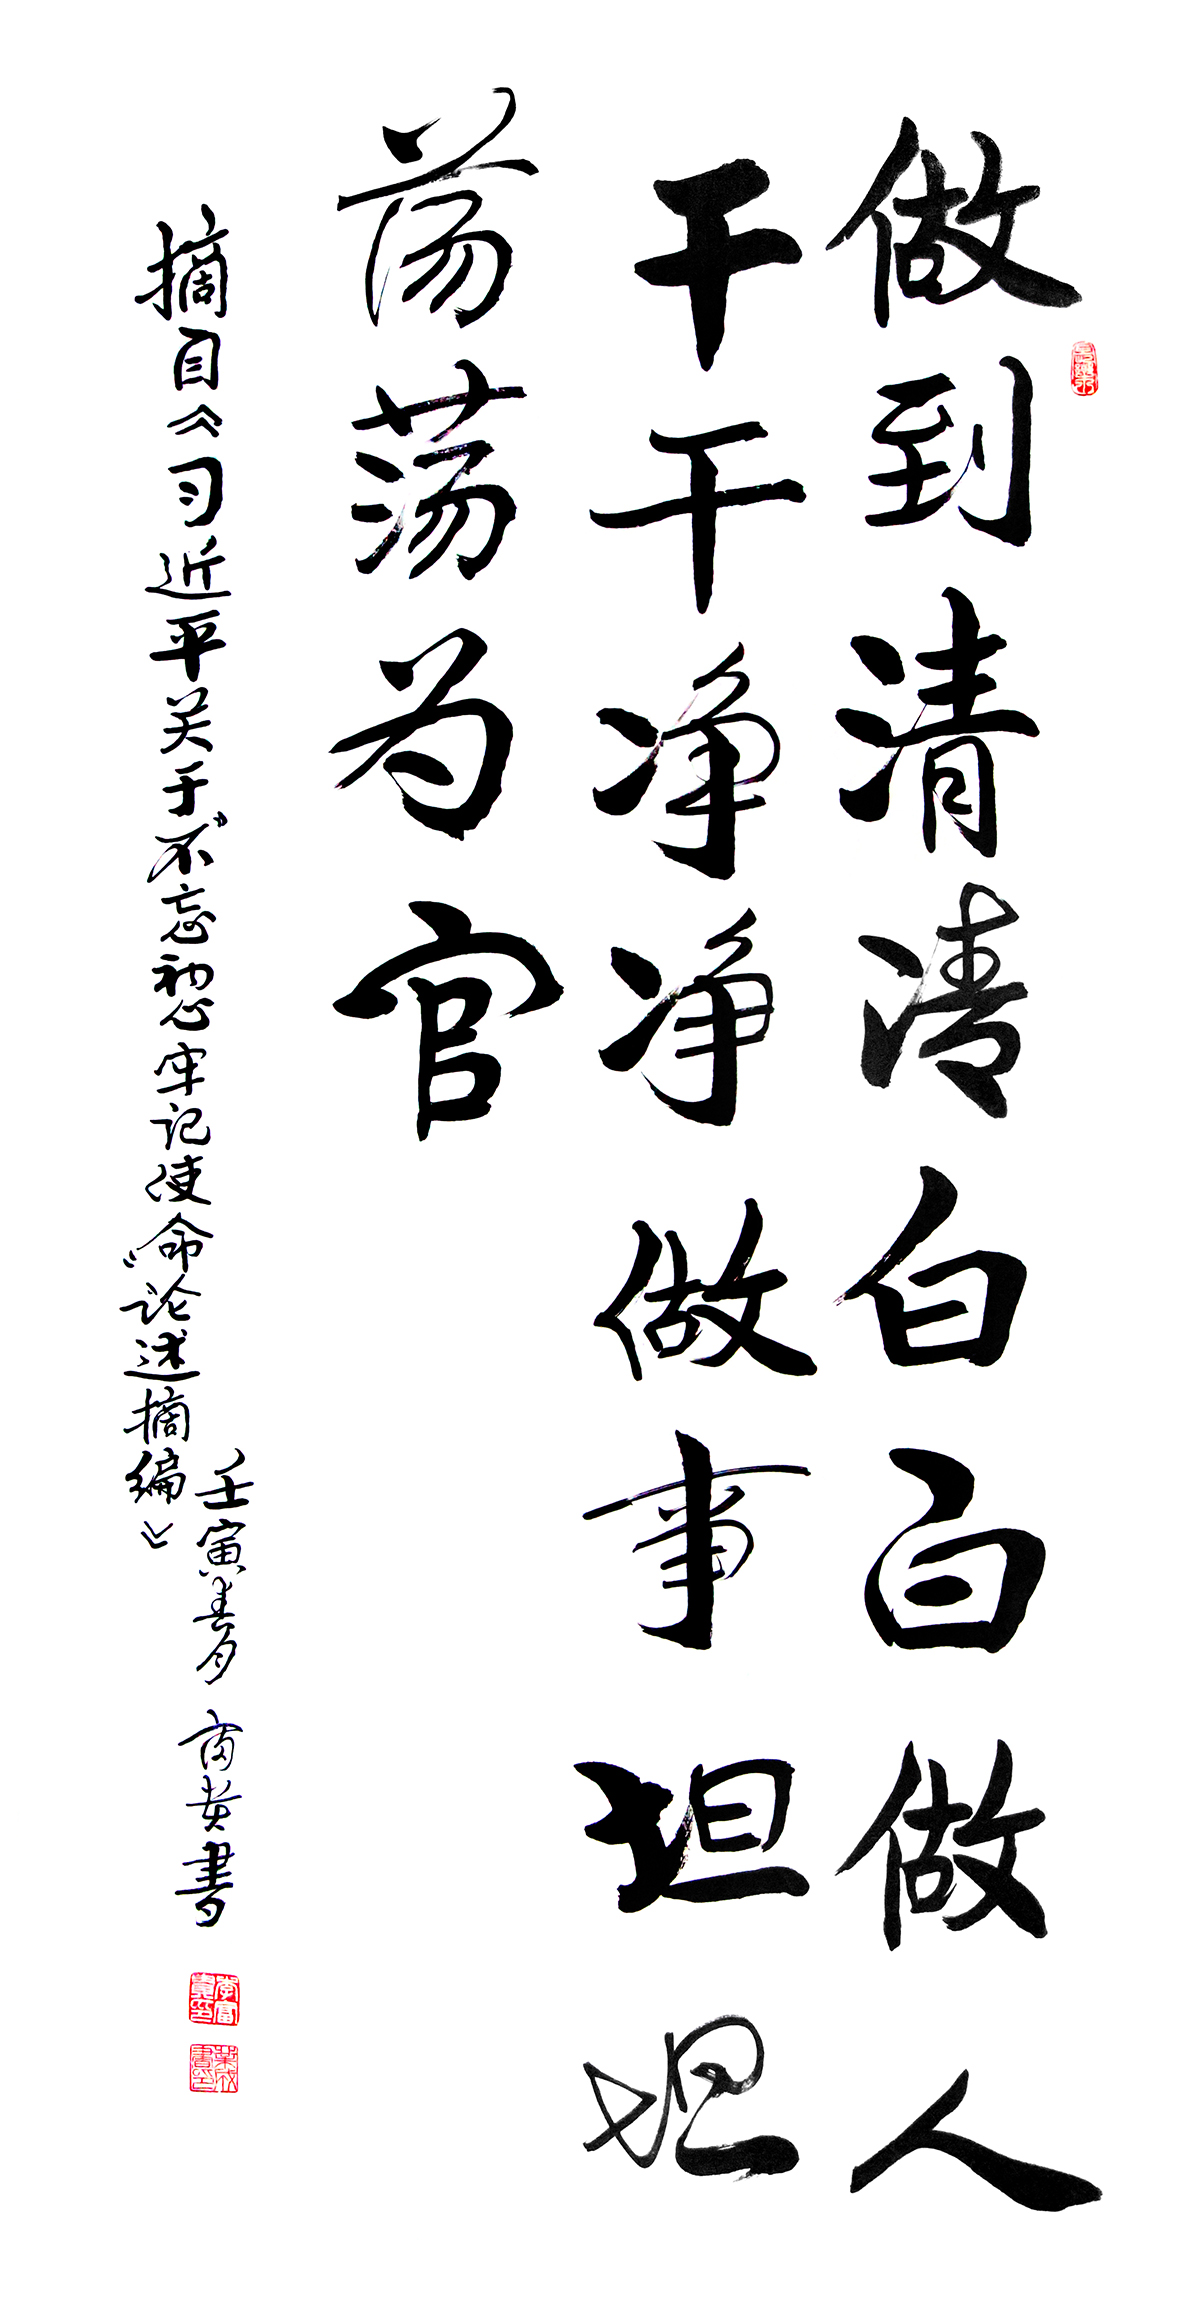 做到清清白白做人
干干净净做事坦坦
荡荡为官
摘自《习近平关于“不忘初心牢记使命”论述摘编》
壬寅春月 富贵书
李富贵印